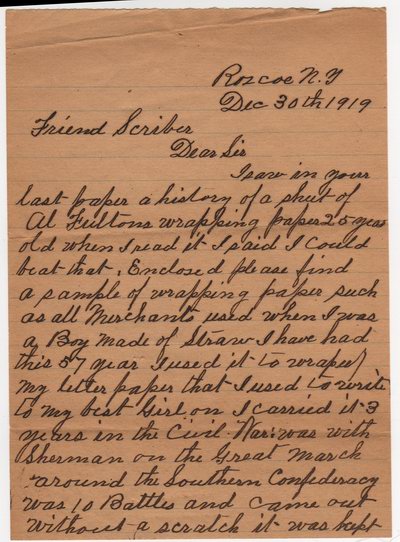 Roscoe N.Y
Dec 30th 1919
Friend Scriber
Dear Sir
I saw in your
last paper a history of a sheet of
Al Fultons wrapping paper 25 year
old when I read it I said I could
beat that. Enclosed please find
a sample of wrapping paper such
as all Merchants used when I was
a Boy made of Straw I have had
this 57 year I used it to wrape
my letter paper that I used to write
to my best Girl on I carried it 3
years in the Civil War: was with
Sherman on the Great March
around the Southern Confederacy
was 10 Battles and came out
without a scratch it was kept